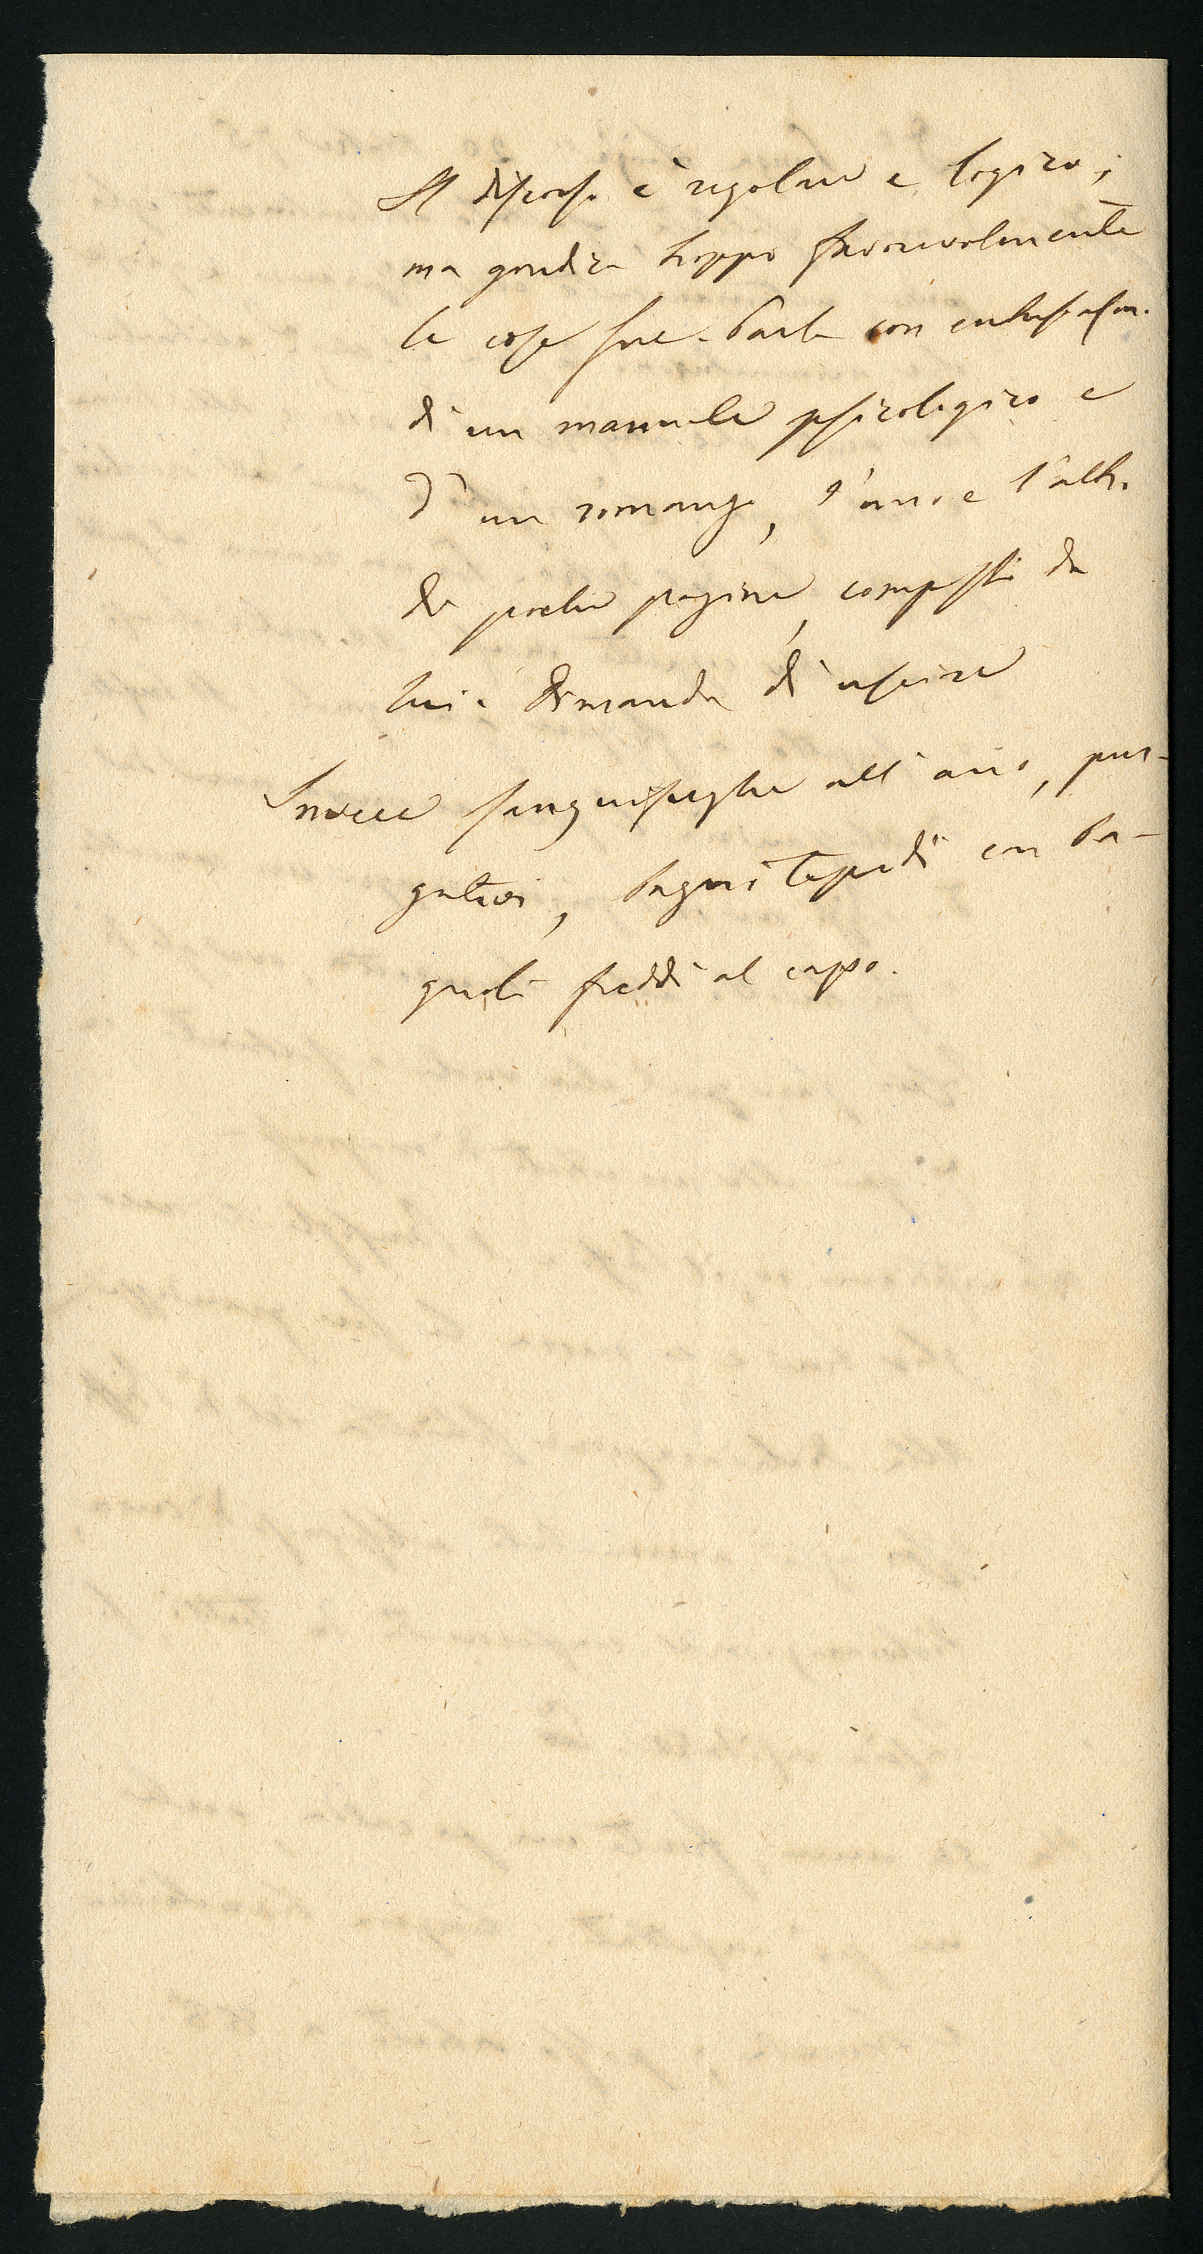 Il discorso è regolare e logico;
ma giudica troppo favorevolmente
le cose sue. Parla con entusiasm.
di un manuale psicologico e
d'un romanzo, l'uno e l'altro
di poche pagine, composti da
lui. Dimanda di uscire
sanguisughe all'ano, pur-
gativi, bagni tepidi con ba-
gnoli freddi al capo.